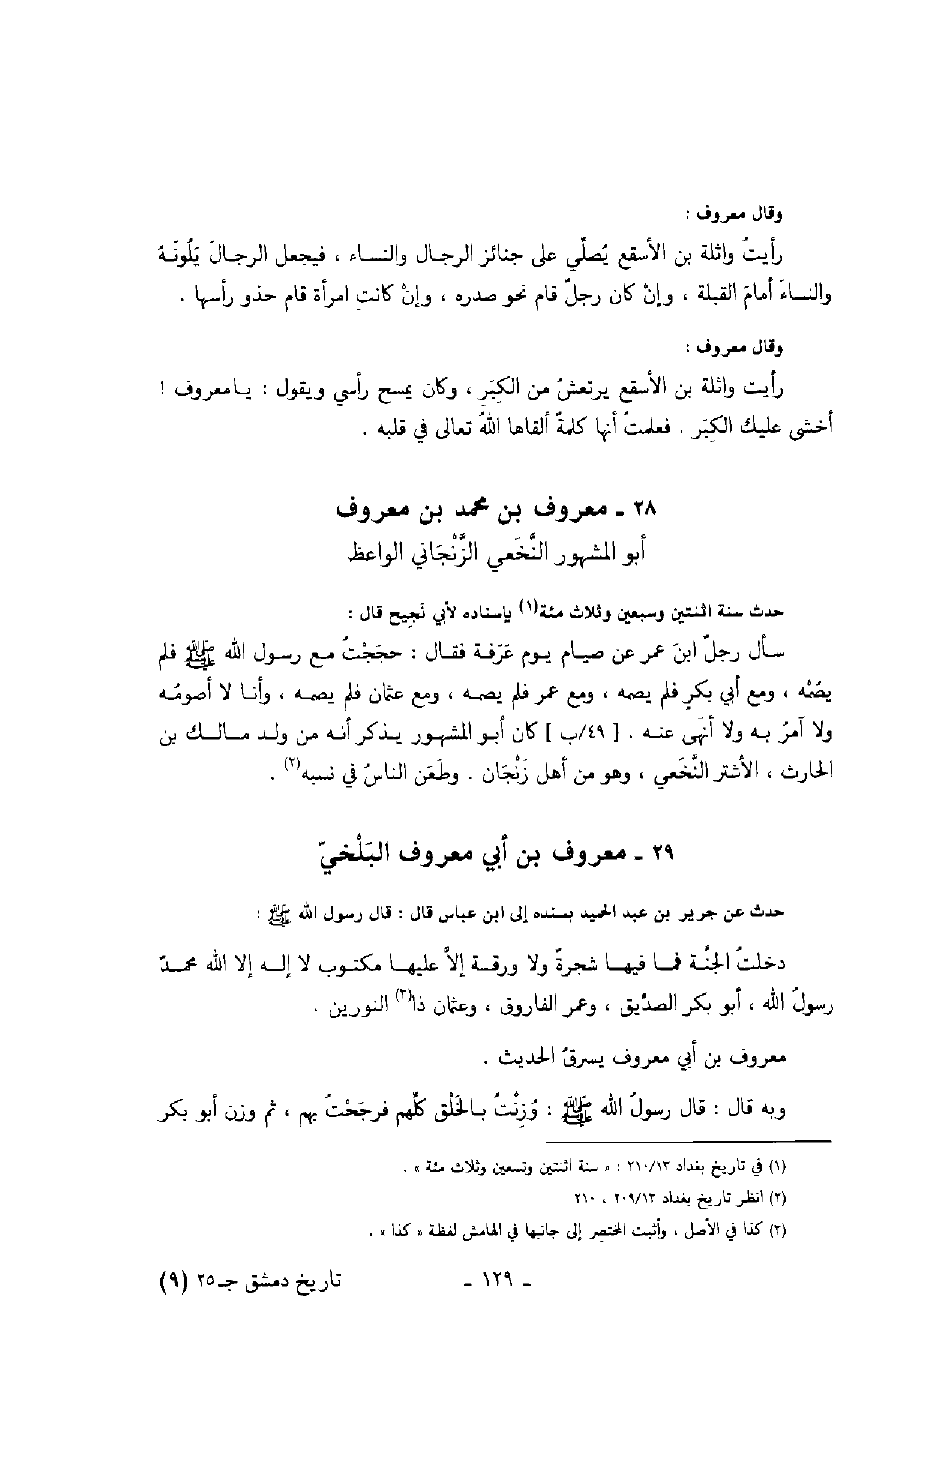 وقال معروف :
رأيتُ واثلة بن الأسقع يُصلّي على جنائز الرجال والنساء ، فيجعل الرجالَ يَلُونَهُ
والنساءَ أمامَ القبلة ، وإن كان رجلٌ قام نحو صدره ، وإنْ كانتِ امرأة قام حذو رأسها .
وقال معروف :
رأيت واثلة بن الأسقع يرتعشُ من الكِبَر ، وكان يمسح رأسي ويقول : يامعروف !
أخشى عليك الكِبَر . فعلمتُ أنها كلمةٌ ألقاها اللهُ تعالى في قلبه .
٢٨ ـ معروف بن محمد بن معروف
أبو المشهور النَّخَعي الزَّنْجَاني الواعظ
حدث سنة اثنتين وسبعين وثلاث مئة(١) بإسناده لأبي نَجيح قال :
سأل رجلٌ ابنَ عمر عن صيام يوم عَرَفة فقال : حججْتُ مع رسول الله ﷺ فلم
يصُمْه ، ومع أبي بكرٍ فلم يصمه ، ومع عمر فلم يصمه ، ومع عثمان فلم يصمه ، وأنا لا أصومُه
ولا آمرُ به ولا أنْهَى عنه . [ ٤٩/ب ] كان أبو المشهور يذكر أنه من ولد مالك بن
الحارث ، الأشتر النَّخَعي ، وهو من أهل زَنْجَان . وطَعَن الناسُ في نسبه(٢) .
٢٩ ـ معروف بن أبي معروف البَلْخيّ
حدث عن جرير بن عبد الحميد بسنده إلى ابن عباس قال : قال رسول الله ﷺ :
دخلتُ الجنَّة فما فيها شجرةٌ ولا ورقة إلاَّ عليها مكتوب لا إله إلا الله محمدٌ
رسولُ الله ، أبو بكر الصدِّيق ، وعمر الفاروق ، وعثمان ذا(٣) النورين .
معروف بن أبي معروف يسرقُ الحديث .
وبه قال : قال رسولُ الله ﷺ : وُزِنْتُ بالخَلْق كلِّهم فرجَحْتُ بهم ، ثم وزن أبو بكر
(١) في تاريخ بغداد ٢١٠/١٣ : « سنة اثنتين وتسعين وثلاث مئة » .
(٢) انظر تاريخ بغداد ٢٠٩/١٣ ، ٢١٠
(٣) كذا في الأصل ، وأثبت المختصر إلى جانبها في الهامش لفظة « كذا » .
ـ ١٢٩ ـ تاريخ دمشق جـ٢٥ (٩)